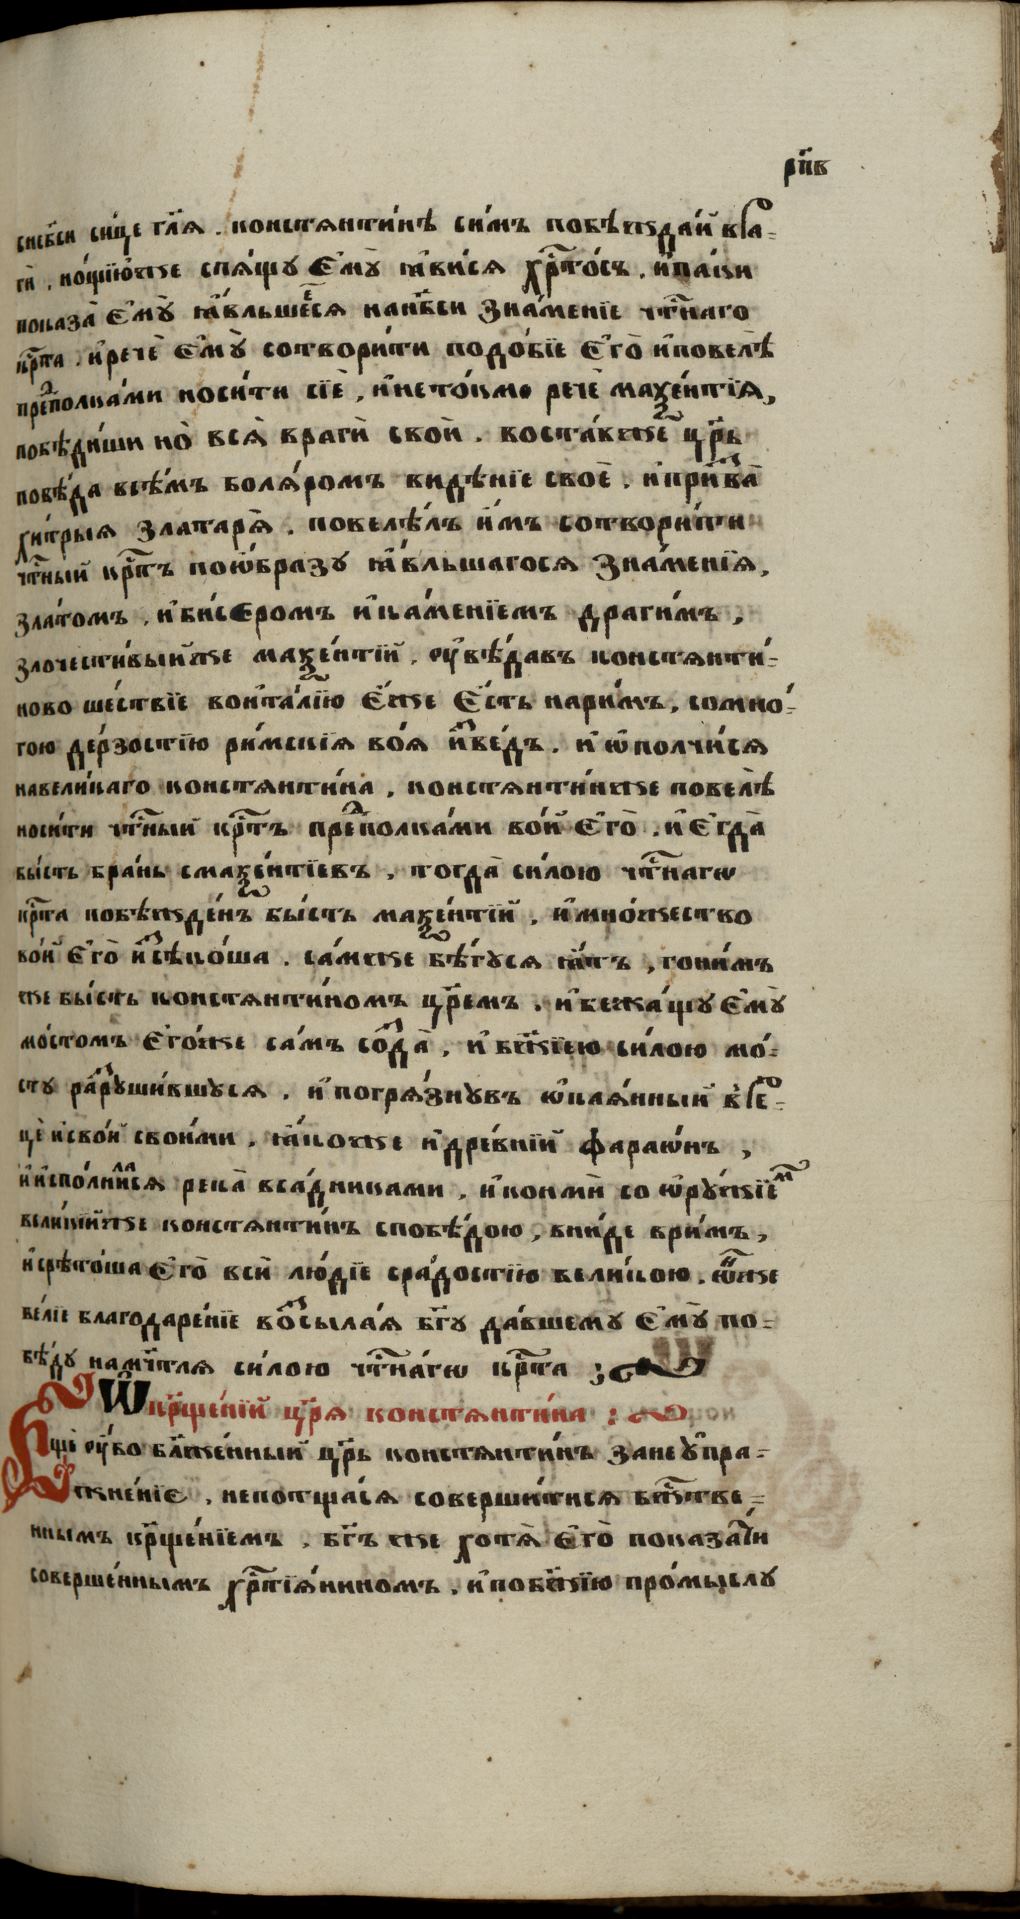 рп҃в
снб҃си си́це гл҃я . константи́нѣ си́мъ побѣжда́й вра-
гѝ . но́щїю́же спя́щу є҆мꙋ̀ ꙗ҆ви́ся хрⷭ҇то́съ , и҆па́ки
показа̀ є҆мꙋ̀ ꙗ҆́вльшеесѧ нанб҃си зна́менїе чтⷭ҇наго
крⷭ҇та . и҆речѐ є҆мꙋ̀ сотвори́ти подо́бїе є҆го̀ и҆повелѣ̀
преⷣполка́ми носи́ти сїѐ , и҆нето́кмо речѐ маѯе́нтїѧ ,
побѣди́ши но̀ всѧ̀ врагѝ своѝ . воста́вже цр҃ь
повѣ́да всѣ́мъ боля́ромъ видѣ́нїе своѐ , и҆приꙁва̀
хи́трыя златарѧ̀ . повелѣ́лъ и҆́мъ сотвори́ти
чтⷭ҇ный крⷭ҇тъ поѡ҆́бразу ꙗ҆́вльшагося зна́менїѧ ,
зла́томъ , и҆би́сєромъ и҆ка́менїемъ драги́мъ ,
злочести́выйже маѯе́нтїй , оу҆вѣ́давъ константи́-
ново ше́ствїе воита́лїю є҆́же є҆́сть нари́мъ , сомно́-
гою де́рзостїю ри́мскїя во́ѧ и҆ꙁве́дъ . и҆ ѡ҆полчи́ся
навели́каго константи́на , константи́нже повелѣ̀
носи́ти чтⷭ҇ный крⷭ҇тъ преⷣполка́ми во́й є҆го̀ . и҆ є҆гда̀
бы́сть бра́нь смаѯе́нтїевъ , тогда̀ си́лою чтⷭ҇нагѡ
крⷭ҇та побѣжде́нъ бы́сть маѯе́нтїй , и҆мно́жество
во́й є҆го̀ и҆ꙁсѣко́ша . са́мже бѣ́гуся ꙗ҆́тъ , гони́мъ
же бы́сть константи́номъ цр҃емъ . и҆ бежа́щу є҆мꙋ̀
мо́стомъ є҆го́же са́мъ соꙁда̀ , и҆ бж҃їею си́лою мо́-
сту раꙁруши́вшуся . и҆ погря́знувъ ѡ҆кая́нный в̾ рѣ-
цѐ и҆свои́ свои́ми , ꙗ҆́коже и҆дре́внїй фараѡ́нъ ,
и҆испо́лнилася река̀ вса́дниками , и҆ коньмѝ со ѡ҆рꙋ́жїеⷨ
вели́кїйже константи́нъ спобѣ́дою , вни́де ври́мъ ,
и҆срѣто́ша є҆го̀ всѝ лю́дїе сра́достїю вели́кою . ѻ҆́нже
ве́лїе благодаре́нїе воꙁсыла́ѧ бг҃у да́вшему є҆мꙋ̀ по-
бѣ́ду намꙋчт҃ля си́лою чтⷭ҇на́гѡ крⷭ҇та :
Ѡ҆ кр҃ще́нїй цр҃ѧ константи́на :
Е҆щѐ оу҆́бо бл҃же́нный цр҃ь константи́нъ занеу҆пра-
жне́нїе , непотща́ся соверши́тися бжⷭ҇тве-
ннымъ кр҃ще́нїемъ . бг҃ъ же хотѧ̀ є҆го̀ показа́ти
соверше́ннымъ хрⷭ҇тїя́нином̾ , и҆побж҃їю про́мыслу